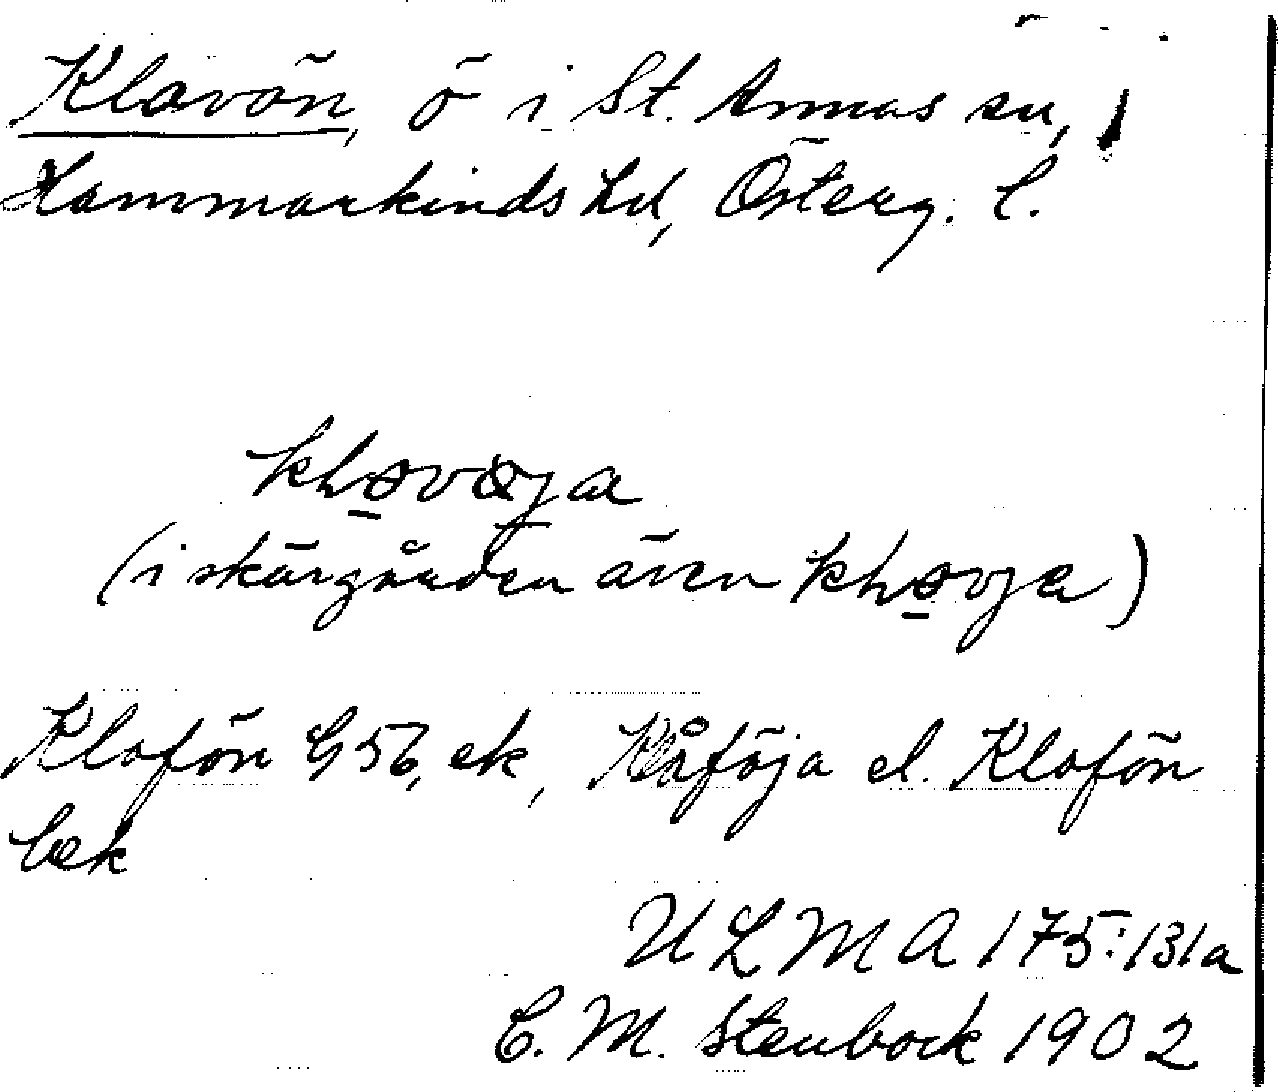 Klavön, ö i St. Annas sn,
Hammarkinds hd, Österg. l.
(i skärgården även
Klofön G 56, ek, Klåföja el. Klofön
bek
ULMA 175:131a
C. M. Stenbock 1902